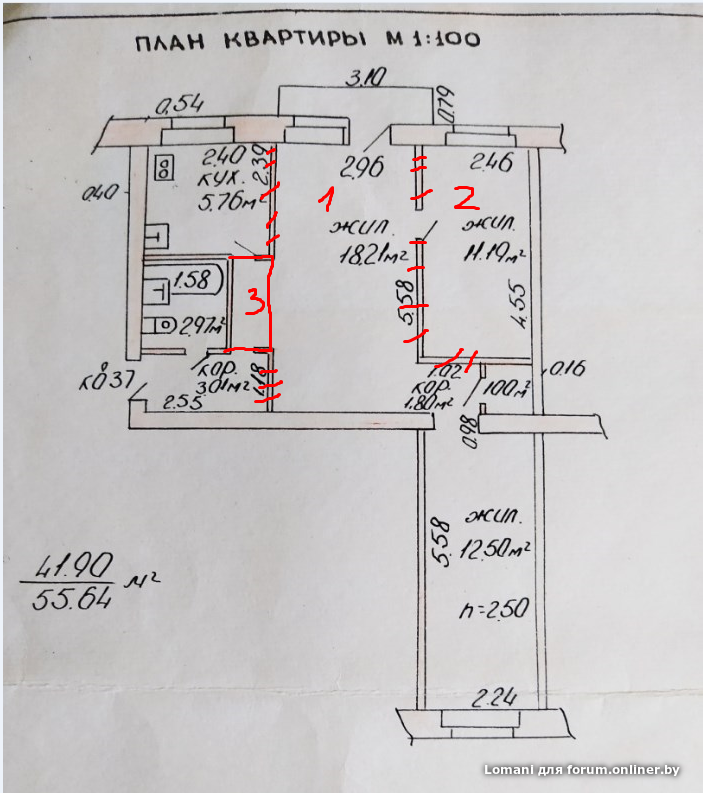 ПЛАН КВАРТИРЫ М 1:100
3.10
0.54
0.79
2.40
2.39
2.96
2.46
КУХ.
0.40
5.76м²
1
2
жил.
18.21м²
жил.
11.19м²
1.58
3
5.58
4.55
2.97м²
кор.
3.01м²
1.18
1.02
0.16
кор.
1.00м²
1.80м²
2.55
0.98
жил.
5.58
12.50м²
41.90
55.64 м²
h=2.50
2.24
Lomani для forum.onliner.by